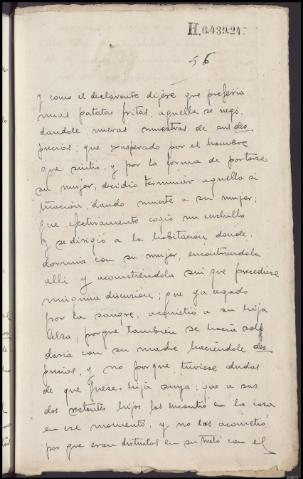 H.0439.24
56
y como el declarante dijere que preferia
unas patatas fritas, aquella se negó,
dandole nuevas muestras de sus des
precios; que exasperado por el hambre
que sintio, y por la forma de portarse
su mujer, decidió terminar aquella si
tuación dando muerte a su mujer;
que efectivamente cogio un cuchillo
y se dirigió a la habitación, donde
dormia con su mujer, encontrandola
alli y acometiendola sin que precediese
ninguna discusion; que ya cegado
por la sangre, acometio a su hija
porque tambien se hacia soli
daria con su madre haciendole des
precios, y no porque tuviese dudas
de que fuese hija suya; que a sus
dos restantes hijos los encontró en la casa
en ese momento, y no los acometió
por que eran distintos en su trato con el